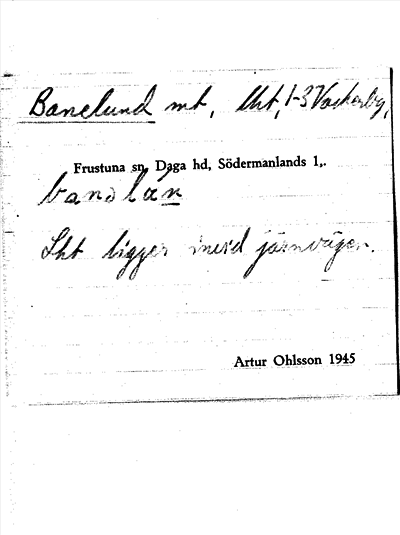 Banelund mt, lht, 1-3 Vackerby,
Frustuna sn, Daga hd, Södermanlands l,.
banəlän
Lht ligger invid järnvägen.
Artur Ohlsson 1945